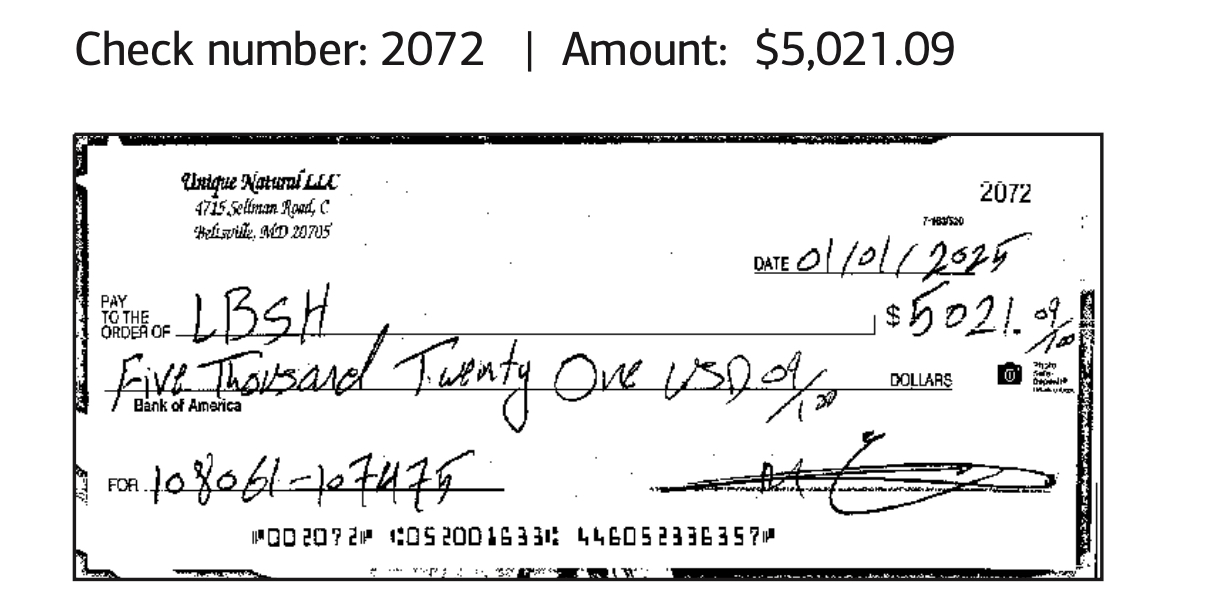 Check number: 2072 | Amount: $5,021.09
Unique Natural LLC
4715 Sellman Road, C
Beltsville, MD 20705
2072
7-163/520
DATE 01/01/2025
PAY
TO THE
ORDER OF LBSH $ 5021. 09/100
Five Thousand Twenty One USD 09/100 DOLLARS
Photo
Safe
Deposit®
Bank of America
FOR 108061-107475
⑈002072⑈ ⑆052001633⑆ 446052336357⑈